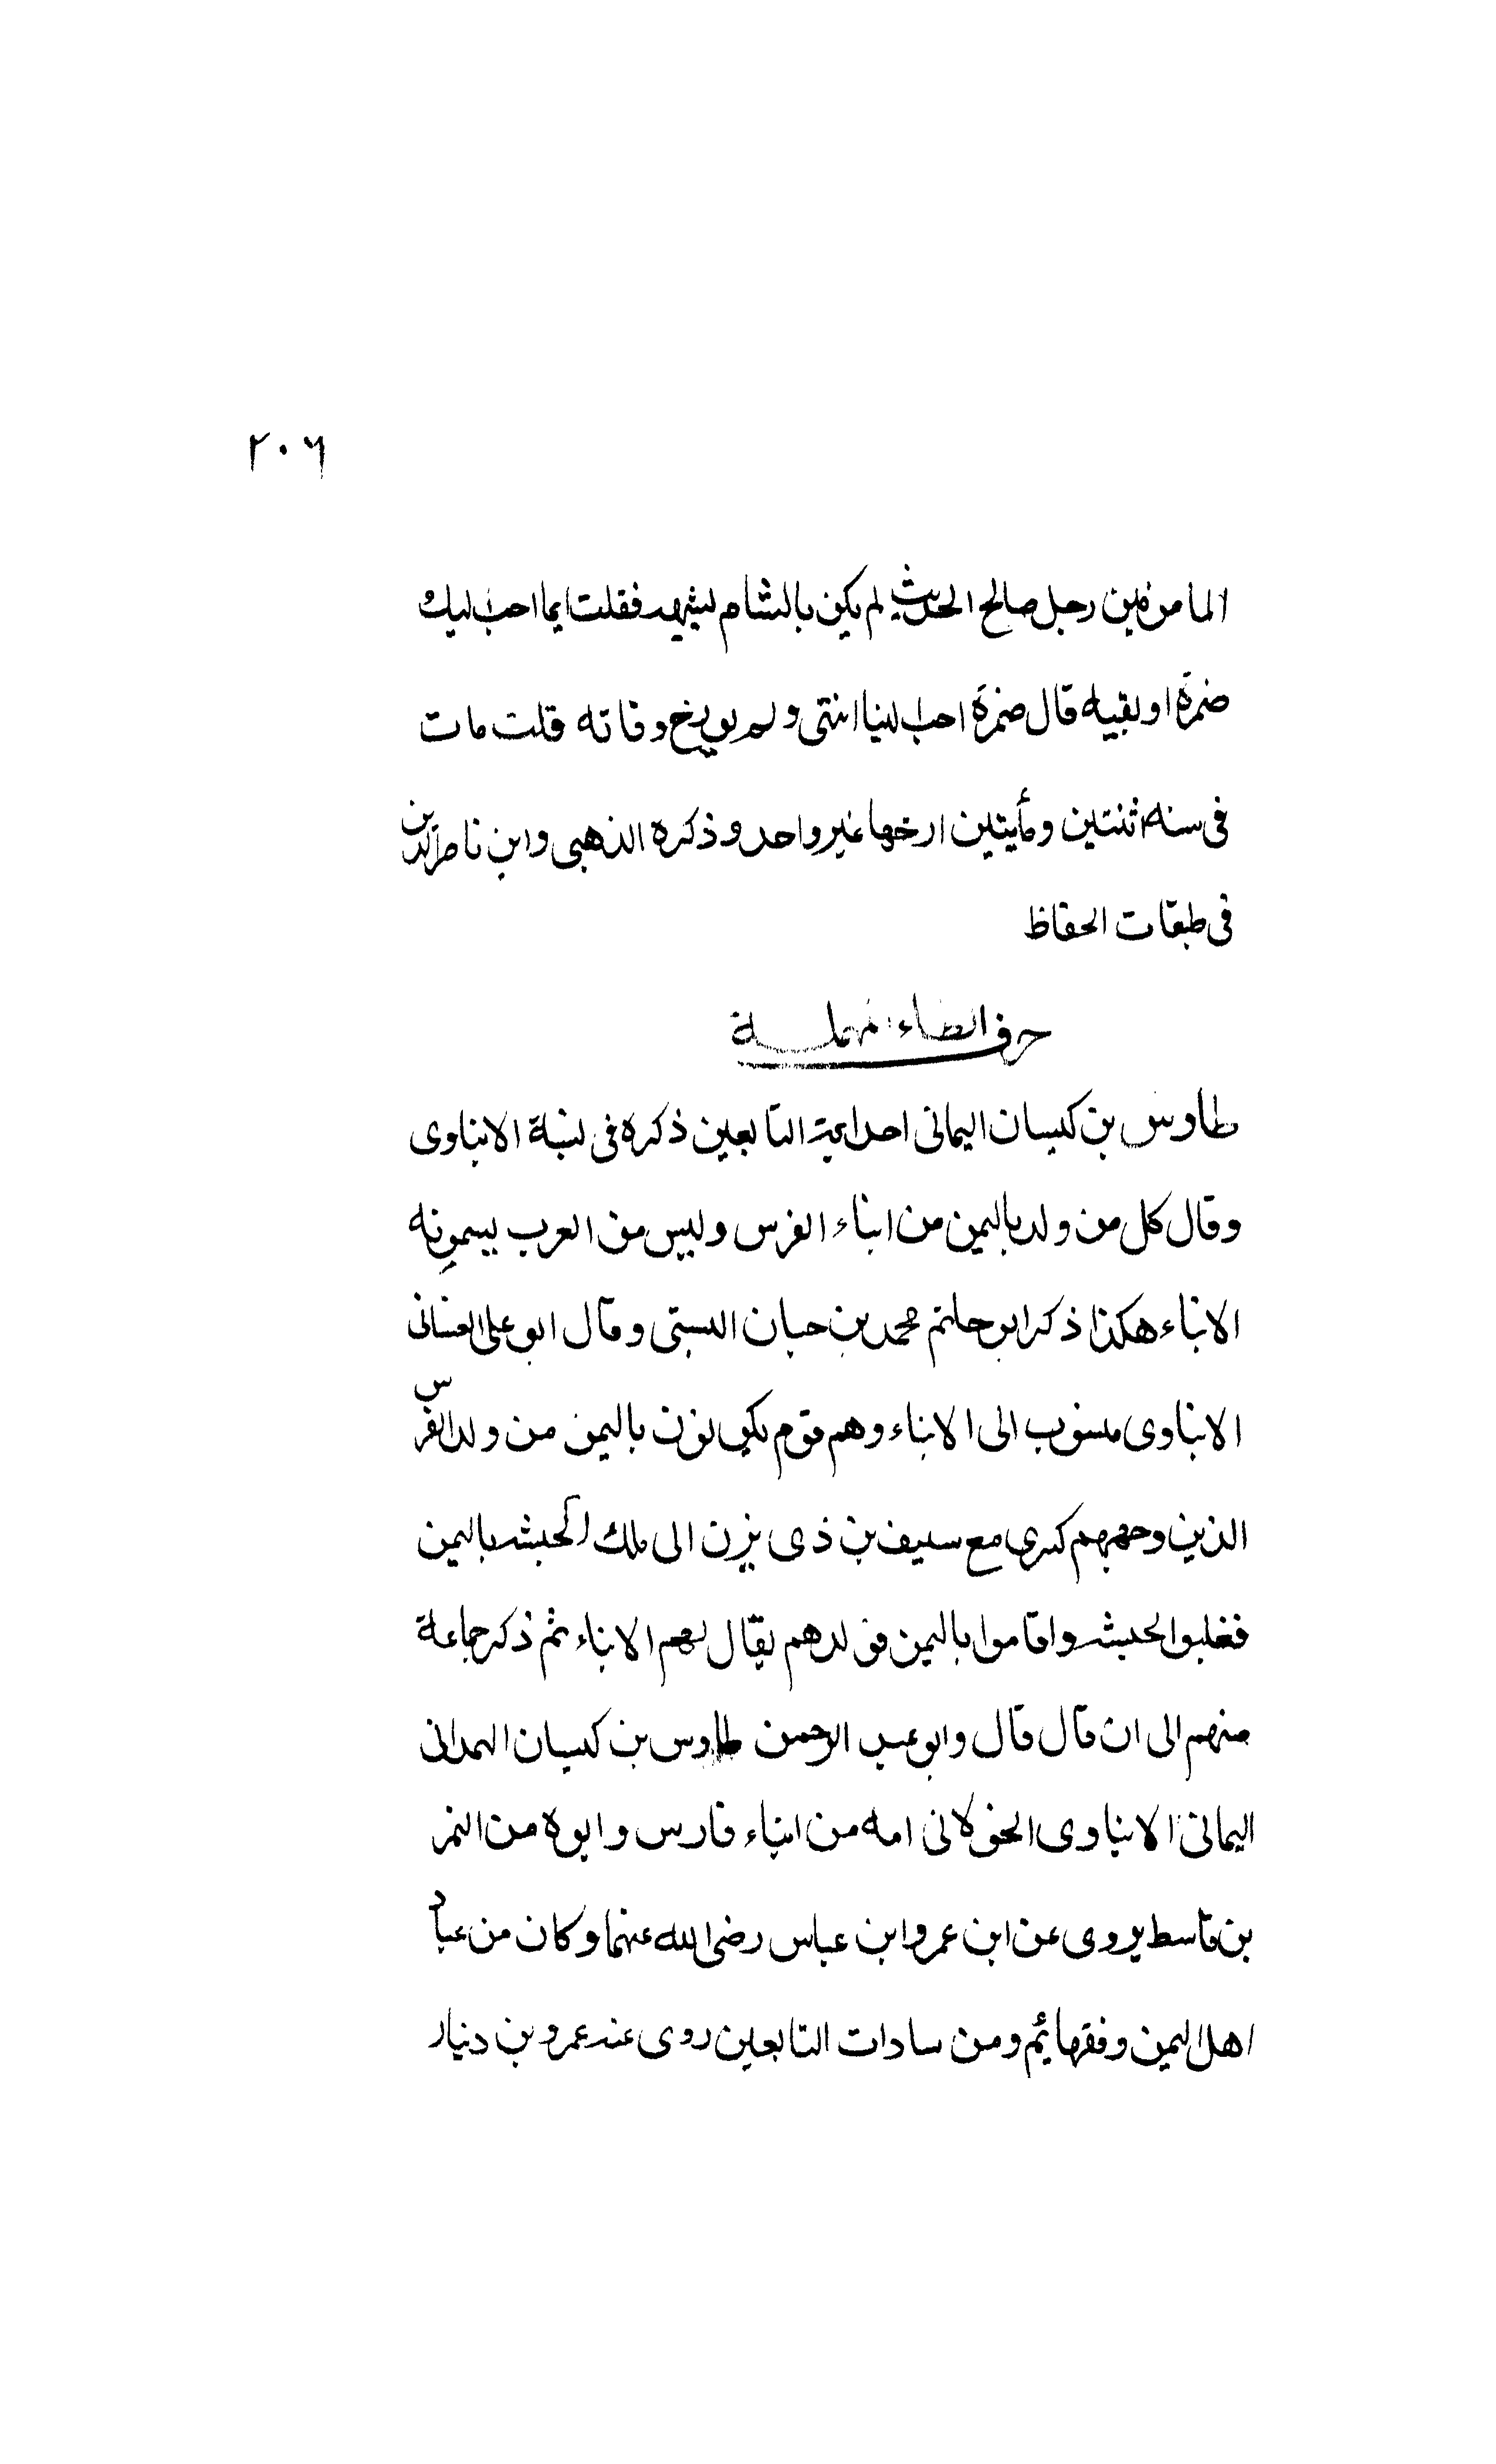 ٢٠٦
المامونين رجل صالح الحديث لم يكن بالشام يشبهه فقلت ايما احب اليك
ضمرة او بقيه قال ضمرة احب الينا انتهى ولم يورخ وفاته قلت مات
فى سنه اثنتين ومأيتين ارخها غير واحد وذكره الذهبى وابن ناصر الدين
فى طبقات الحفاظ
حرف الطاء المهملة
طاوس بن كيسان اليمانى احد ايمة التابعين ذكره فى نسبة الابناوى
وقال كل من ولد باليمن من ابناء الفرس وليس من العرب يسمونه
الابناء هكذا ذكر ابو حاتم محمد بن حبان البستى وقال ابو على الغسانى
الابناوى منسوب الى الابناء وهم قوم يكونون باليمن من ولد الفرس
الذين وجههم كسرى مع سيف بن ذى يزن الى ملك الحبشه باليمن
فغلبوا الحبشه واقاموا باليمن فولدهم يقال لهم الابناء ثم ذكر جماعة
منهم الى ان قال قال وابو عبد الرحمن طاوس بن كيسان الهمدانى
اليمانى الابناوى الخولانى امه من ابناء فارس وابوه من النمر
بن قاسط يروى عن ابن عمر وابن عباس رضى الله عنهما وكان من عباد
اهل اليمن وفقهائهم ومن سادات التابعين روى عنه عمرو بن دينار